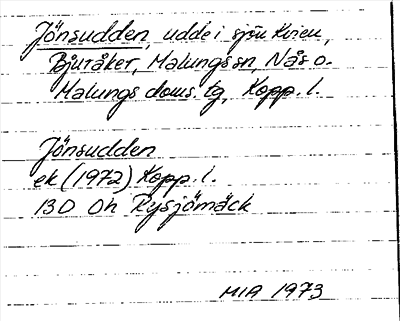 Jönsudden, udde i sjön Kvien,
Bjuråker, Malungs sn, Nås o.
Malungs doms. lg, Kopp. l.
Jönsudden
ek (1972) Kopp. l.
13D 0h Rysjömäck
MIA 1973